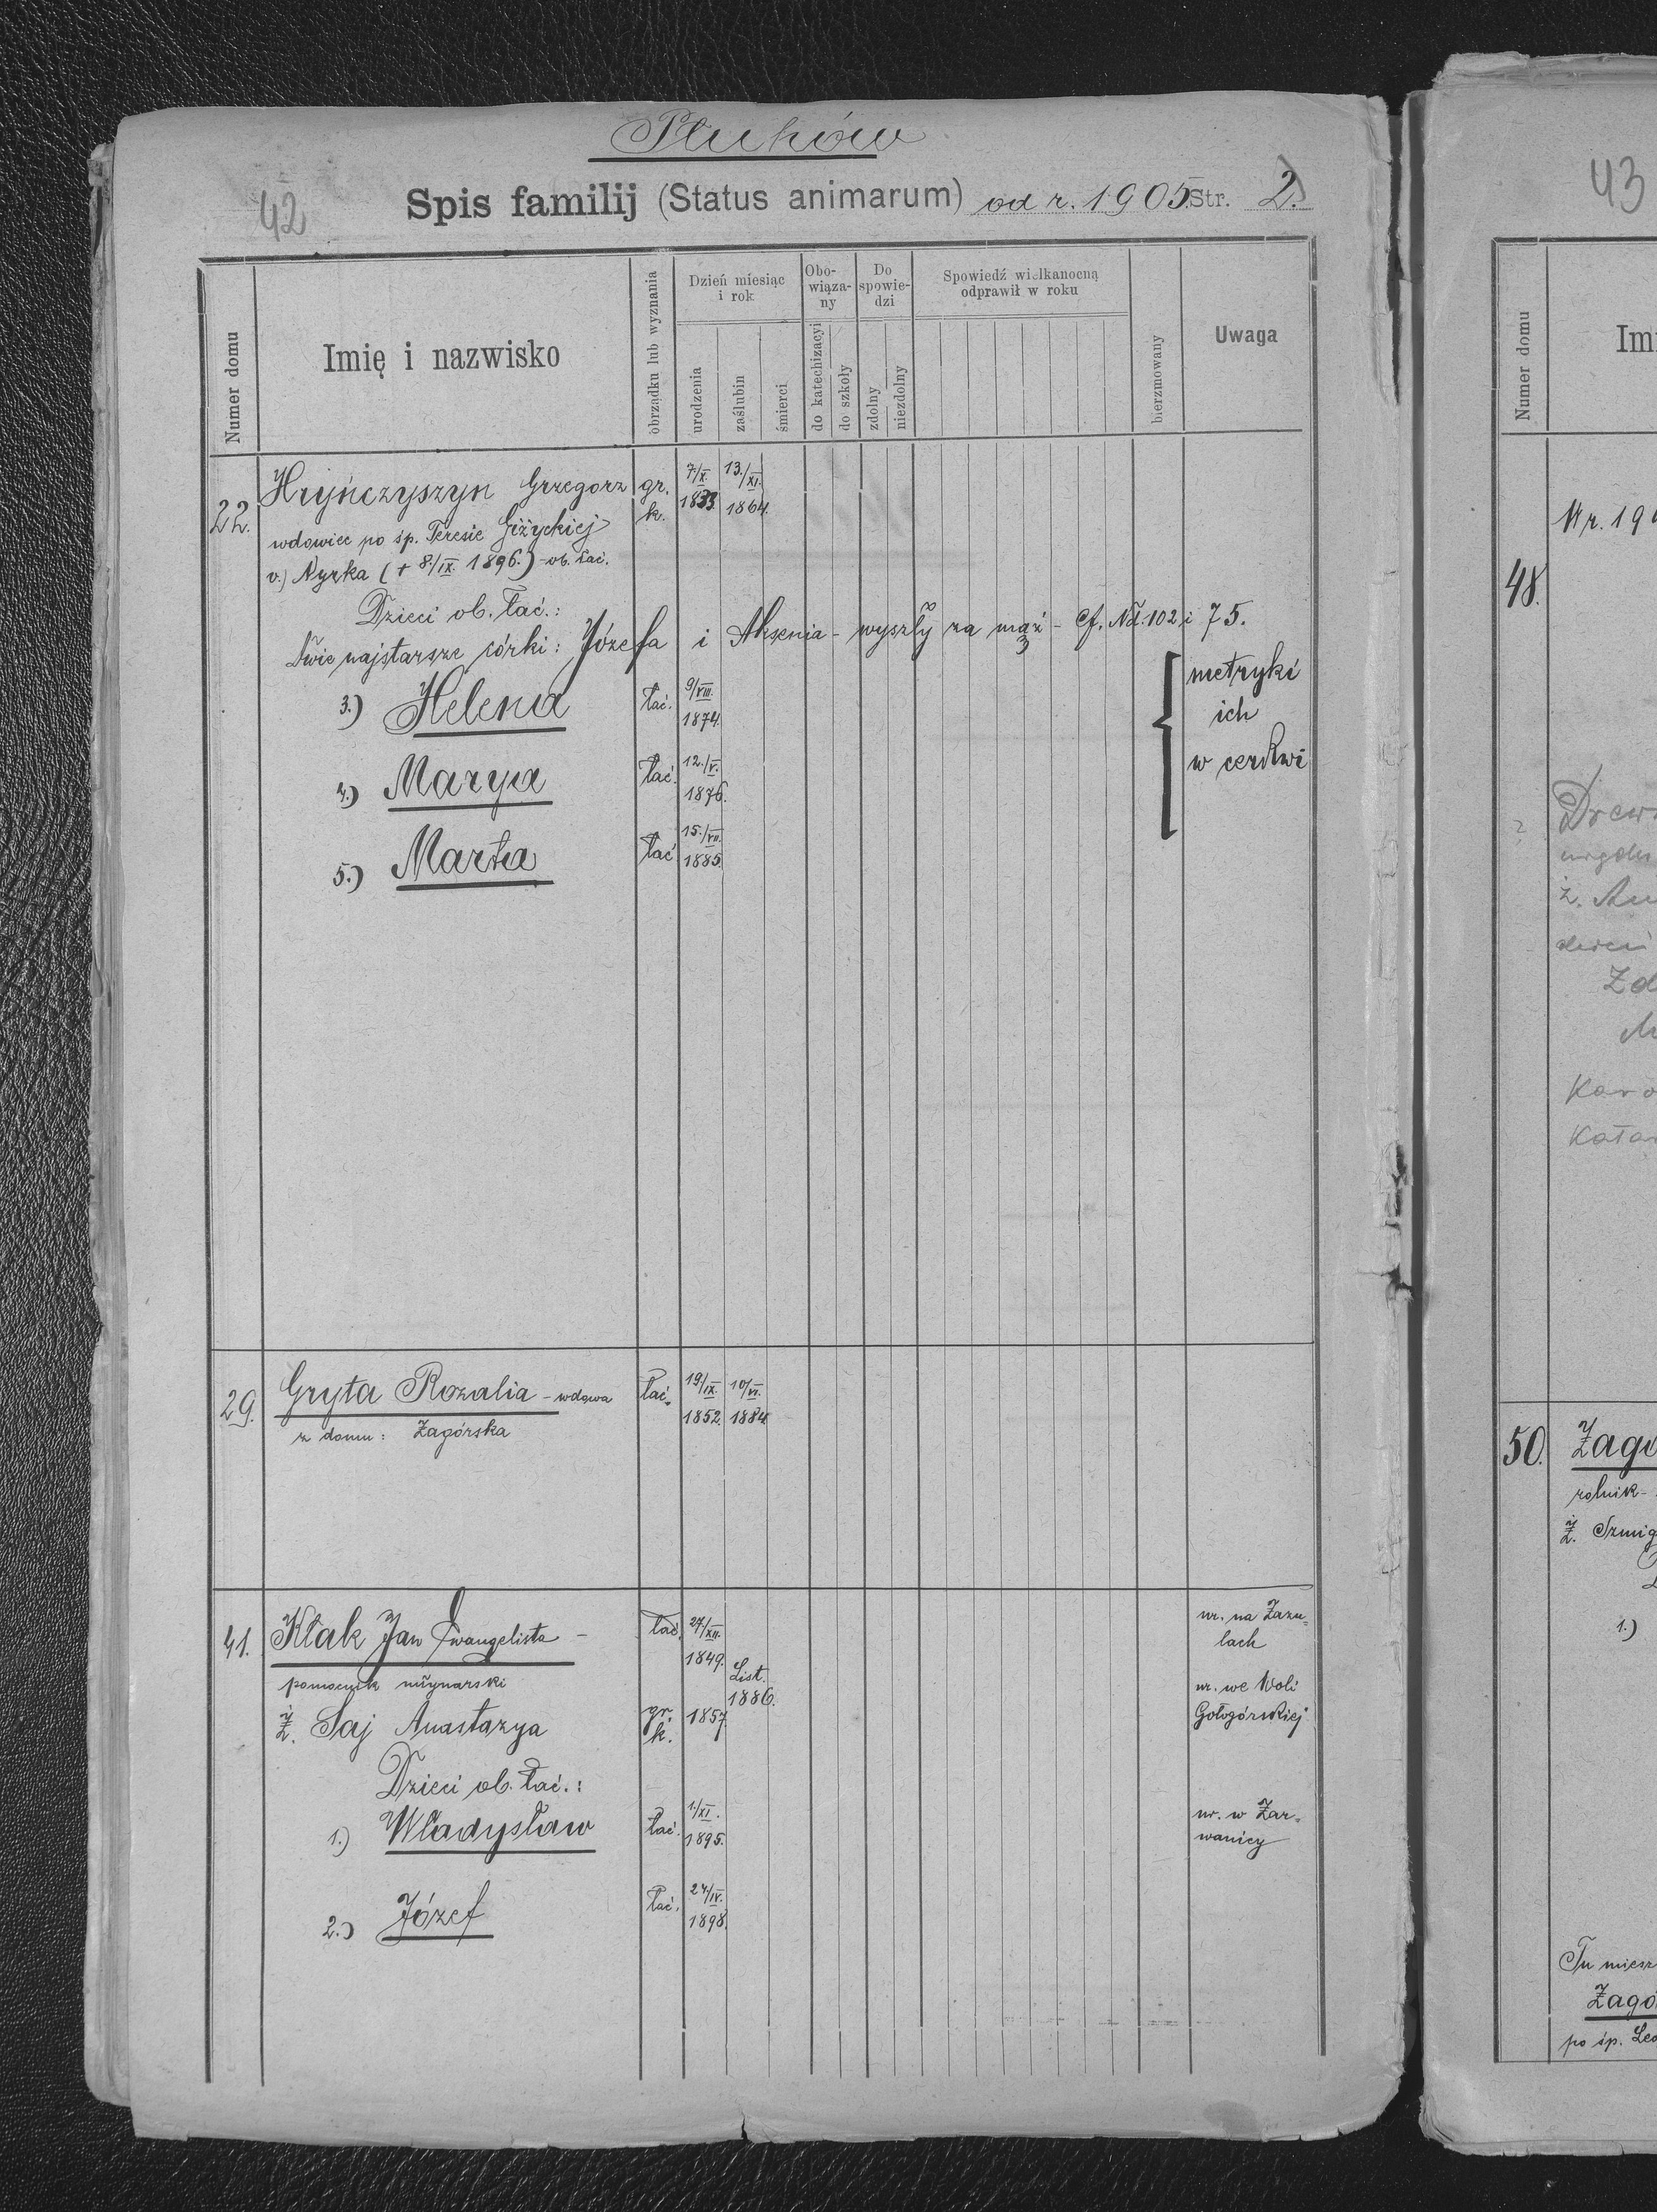 Płuhów
42
Spis familij (Status animarum) od r. 1905. Str. 2.)
Numer domu
Imię i nazwisko
obrządku lub wyznania
Dzień miesiąc i rok
urodzenia
zaślubin
śmierci
Obo-wiąza-ny
do katechizacyi
do szkoły
Do spowie-dzi
zdolny
niezdolny
Spowiedź wielkanocną
odprawił w roku
bierzmowany
Uwaga
22. Hryńczyszyn Grzegorz gr. k. 7/X. 1833. 13./XI. 1864.
wdowiec po śp. Teresie Giżyckiej
v.) Nyrka († 8./IX. 1896.) - ob. łać.
Dzieci ob. łać.:
Dwie najstarsze córki: Józefa i Aksenia - wyszły za mąż - Cf. Nd. 102 i 75.
3.) Helena łać. 9/VIII. 1874.
metryki
ich
w cerkwi
4.) Marya łać. 12./V. 1876.
5.) Marta łać. 15./VII. 1885.
29. Gryta Rozalia - wdowa łać. 19/IX. 1852. 10/VI. 1884.
z domu: Zagórska
41. Kłak Jan Ewangelista - łać. 27/XII. 1849. ur. na Zazu=
lach
pomocnik młynarski List. 1886.
ż. Saj Anastazya gr. k. 1857. ur. we Woli
Gołogórskiej
Dzieci ob. łać.:
1.) Władysław łać. 1./XI. 1895. ur. w Zar=
wanicy
2.) Józef łać. 24/IV. 1898.
43
Numer domu
Im
48.
50. Zagó
rolnik -
ż.
1.)
Tu miesz
Zagó
po śp. Leo